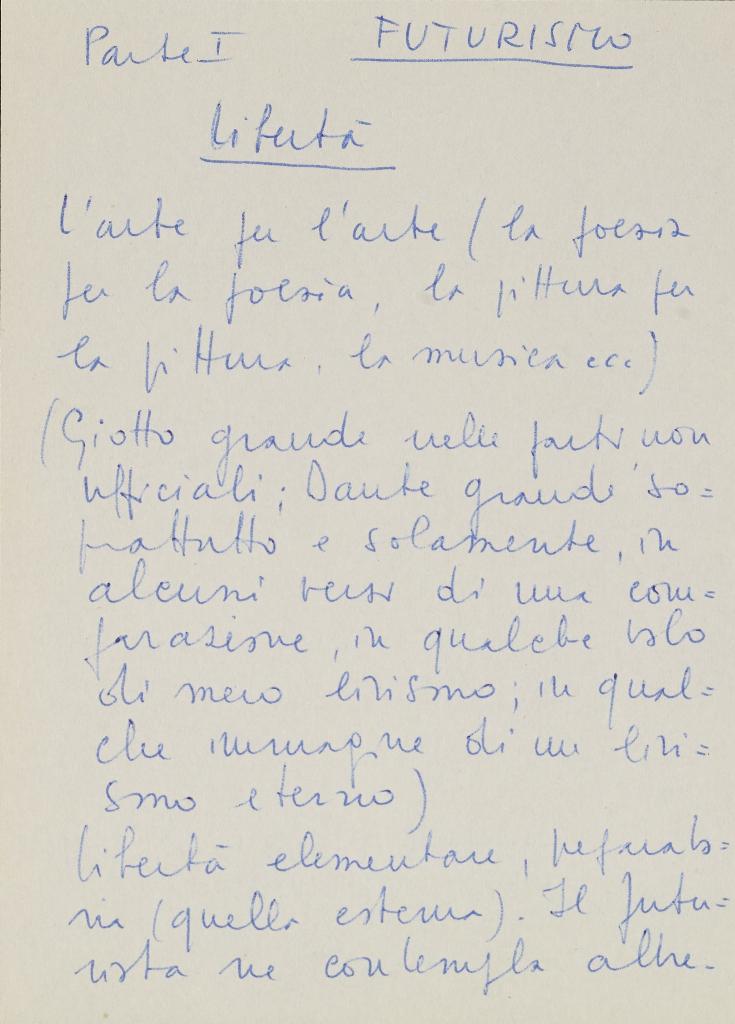 Parte I FUTURISMO
Libertà
L'arte per l'arte (la poesia
per la poesia, la pittura per
la pittura, la musica ecc.)
(Giotto grande nelle parti non
ufficiali; Dante grande so=
prattutto e solamente, in
alcuni versi di una com=
parazione, in qualche volo
di mero lirismo; in qual=
che immagine di un liri=
smo eterno)
Libertà elementare, preparato=
ria (quella esterna). Il futu=
rista ne contempla altre.